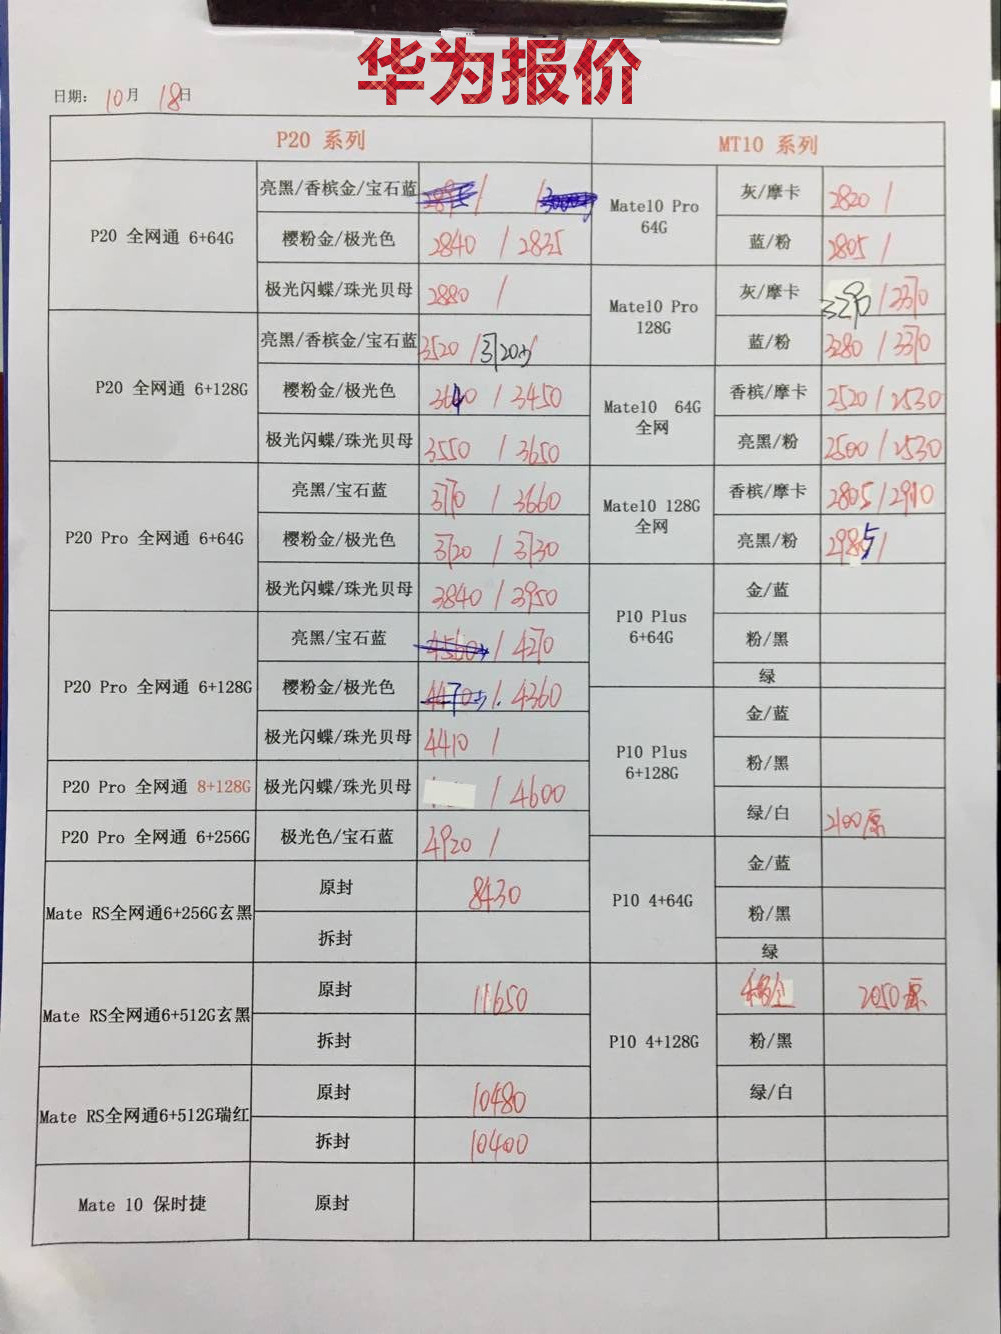 华为报价
日期: 10月 18日
P20 系列
MT10 系列
P20 全网通 6+64G
亮黑/香槟金/宝石蓝 /
樱粉金/极光色 2840 / 2835
极光闪蝶/珠光贝母 2880 /
P20 全网通 6+128G
亮黑/香槟金/宝石蓝 3520 /
樱粉金/极光色 / 3450
极光闪蝶/珠光贝母 3550 / 3650
P20 Pro 全网通 6+64G
亮黑/宝石蓝 3710 / 3660
樱粉金/极光色 3720 / 3730
极光闪蝶/珠光贝母 3840 / 3950
P20 Pro 全网通 6+128G
亮黑/宝石蓝 / 4270
樱粉金/极光色 / 4360
极光闪蝶/珠光贝母 4410 /
P20 Pro 全网通 8+128G
极光闪蝶/珠光贝母 / 4600
P20 Pro 全网通 6+256G
极光色/宝石蓝 4920 /
Mate RS全网通6+256G玄黑
原封 8430
拆封
Mate RS全网通6+512G玄黑
原封 11650
拆封
Mate RS全网通6+512G瑞红
原封 10480
拆封 10400
Mate 10 保时捷
原封
Mate10 Pro
64G
灰/摩卡 2820 /
蓝/粉 2805 /
Mate10 Pro
128G
灰/摩卡 3290 / 3370
蓝/粉 3280 / 3370
Mate10 64G
全网
香槟/摩卡 2520 / 2530
亮黑/粉 2500 / 2530
Mate10 128G
全网
香槟/摩卡 2805 / 2910
亮黑/粉 2985 /
P10 Plus
6+64G
金/蓝
粉/黑
绿
P10 Plus
6+128G
金/蓝
粉/黑
绿/白 2100原
P10 4+64G
金/蓝
粉/黑
绿
P10 4+128G
2050原
粉/黑
绿/白